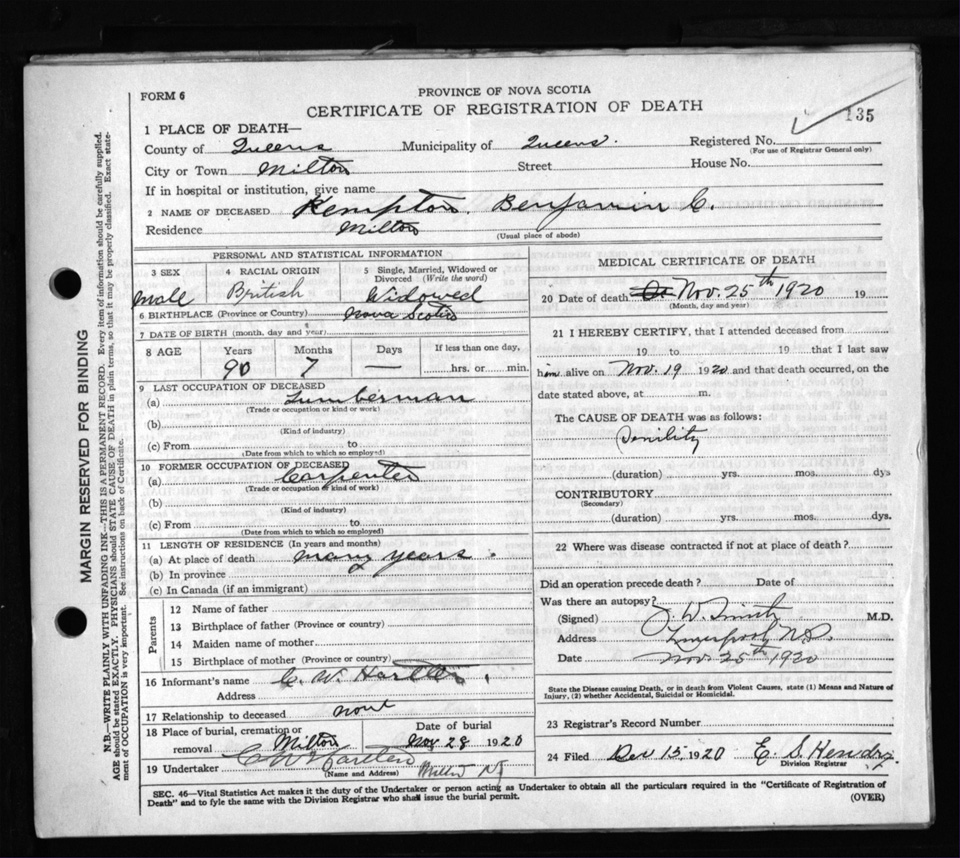 FORM 6
PROVINCE OF NOVA SCOTIA
CERTIFICATE OF REGISTRATION OF DEATH
135
1 PLACE OF DEATH—
County of Queens Municipality of Queens. Registered No.
(For use of Registrar General only)
City or Town Milton Street House No.
If in hospital or institution, give name
2 NAME OF DECEASED Kempton, Benjamin C.
Residence Milton
(Usual place of abode)
PERSONAL AND STATISTICAL INFORMATION
3 SEX 4 RACIAL ORIGIN 5 Single, Married, Widowed or Divorced (Write the word)
Male British Widowed
6 BIRTHPLACE (Province or Country) Nova Scotia
7 DATE OF BIRTH (month, day and year)
8 AGE Years Months Days If less than one day,
90 7 — hrs. or min.
9 LAST OCCUPATION OF DECEASED
(a) Lumberman
(Trade or occupation or kind of work)
(b)
(Kind of industry)
(c) From to
(Date from which to which so employed)
10 FORMER OCCUPATION OF DECEASED
(a) Carpenter
(Trade or occupation or kind of work)
(b)
(Kind of industry)
(c) From to
(Date from which to which so employed)
11 LENGTH OF RESIDENCE (In years and months)
(a) At place of death many years.
(b) In province
(c) In Canada (if an immigrant)
Parents
12 Name of father
13 Birthplace of father (Province or country)
14 Maiden name of mother
15 Birthplace of mother (Province or country)
16 Informant's name C. W. Hartlen.
Address
17 Relationship to deceased none
18 Place of burial, cremation or removal Milton
Date of burial
Nov 28 1920
19 Undertaker C W Hartlen Milton NS
(Name and Address)
MEDICAL CERTIFICATE OF DEATH
20 Date of death Nov. 25th 1920 19
(Month, day and year)
21 I HEREBY CERTIFY, that I attended deceased from
19 to 19 that I last saw
him alive on Nov. 19 1920 and that death occurred, on the
date stated above, at m.
The CAUSE OF DEATH was as follows:
Senility
(duration) yrs. mos. dys
CONTRIBUTORY
(Secondary)
(duration) yrs. mos. dys.
22 Where was disease contracted if not at place of death?
Did an operation precede death? Date of
Was there an autopsy?
(Signed) J. W. Smith M.D.
Address Liverpool, N.S.
Date Nov. 25th 1920
State the Disease causing Death, or in death from Violent Causes, state (1) Means and Nature of
Injury, (2) whether Accidental, Suicidal or Homicidal.
23 Registrar's Record Number
24 Filed Dec 15, 1920 E. S. Hendry.
Division Registrar
SEC. 46—Vital Statistics Act makes it the duty of the Undertaker or person acting as Undertaker to obtain all the particulars required in the "Certificate of Registration of
Death" and to fyle the same with the Division Registrar who shall issue the burial permit.
(OVER)
MARGIN RESERVED FOR BINDING
N.B.—WRITE PLAINLY WITH UNFADING INK—THIS IS A PERMANENT RECORD. Every item of information should be carefully supplied.
AGE should be stated EXACTLY. PHYSICIANS should STATE CAUSE OF DEATH in plain terms, so that it may be properly classified. Exact state-
ment of OCCUPATION is very important. See instructions on back of Certificate.